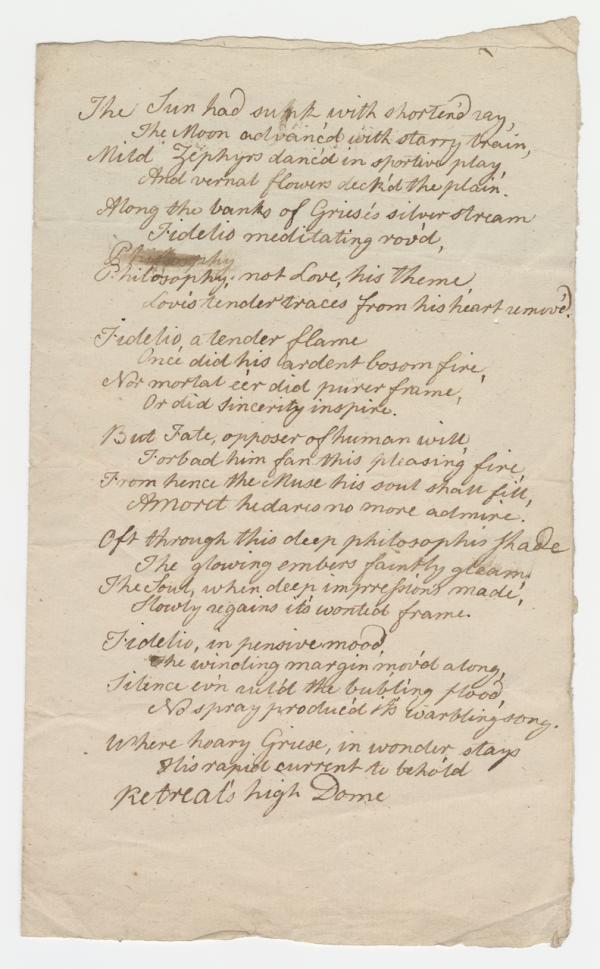 The Sun had sunk with shorten'd ray,
The Moon advanc'd with starry train,
Mild Zephyrs danc'd in sportive play,
And vernal flowers deck'd the plain.
Along the banks of Griese's silver stream
Fidelio meditating rov'd,
Philosophy
Philosophy, not Love, his theme,
Love's tender traces from his heart remov'd.
Fidelio, a tender flame
Once did his ardent bosom fire,
Nor mortal e'er did purer frame,
Or did sincerity inspire.
But Fate, opposer of human will,
Forbad him fan this pleasing fire,
From hence the Muse his soul shall fill,
Amoret he dares no more admire.
Oft through this deep philosophis shade
The glowing embers faintly gleam.
The Soul, when deep impressions made,
Slowly regains it's wonted frame.
Fidelio, in pensive mood,
The winding margin mov'd along,
Silence ev'n rul'd the bubling flood,
No spray produc'd its warbling song.
Where hoary Griese, in wonder stays
His rapid current to behold
Retreat's high Dome